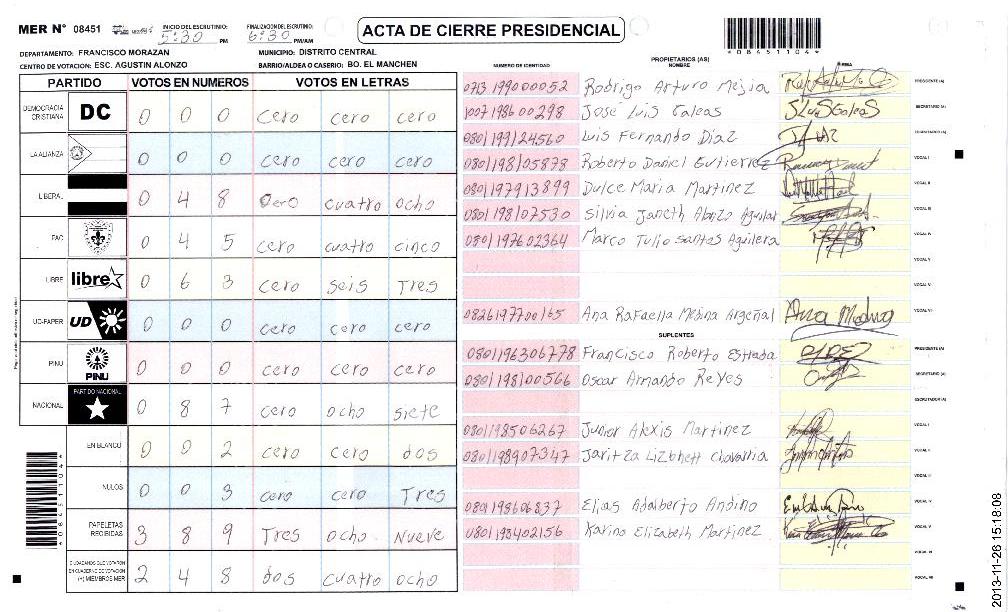 MER Nº 08451
INICIO DEL ESCRUTINIO:
5:30 PM
FINALIZACION DEL ESCRUTINIO:
6:30 PM/AM
ACTA DE CIERRE PRESIDENCIAL
*08451104*
DEPARTAMENTO: FRANCISCO MORAZAN
MUNICIPIO: DISTRITO CENTRAL
CENTRO DE VOTACION: ESC. AGUSTIN ALONZO
BARRIO/ALDEA O CASERIO: BO. EL MANCHEN
PARTIDO VOTOS EN NUMEROS VOTOS EN LETRAS
DEMOCRACIA CRISTIANA DC 0 0 0 cero cero cero
LA ALIANZA 0 0 0 cero cero cero
LIBERAL 0 4 8 cero cuatro ocho
PAC 0 4 5 cero cuatro cinco
LIBRE libre 0 6 3 cero seis Tres
UD-FAPER UD 0 0 0 cero cero cero
PINU PINU 0 0 0 cero cero cero
NACIONAL PARTIDO NACIONAL 0 8 7 cero ocho siete
EN BLANCO 0 0 2 cero cero dos
NULOS 0 0 3 cero cero Tres
PAPELETAS RECIBIDAS 3 8 9 Tres ocho Nueve
CIUDADANOS QUE VOTARON EN CUADERNO DE VOTACION (+) MIEMBROS MER 2 4 8 dos cuatro ocho
NUMERO DE IDENTIDAD
PROPIETARIOS (AS)
NOMBRE
FIRMA
0713199000052 Rodrigo Arturo Mejia PRESIDENTE (A)
1007198600298 Jose Luis Galeas SECRETARIO (A)
0801199124560 Luis Fernando Diaz ESCRUTADOR (A)
0801198105878 Roberto Daniel Gutierrez VOCAL I
0801197913899 Dulce Maria Martinez VOCAL II
0801198107530 Silvia Janeth Alonzo Aguilar VOCAL III
0801197602364 Marco Tulio Santos Aguilera VOCAL IV
VOCAL V
VOCAL VI
0826197700165 Ana Rafaella Medina Argeñal
SUPLENTES
0801196306778 Francisco Roberto Estrada PRESIDENTE (A)
0801198100566 Oscar Armando Reyes SECRETARIO (A)
ESCRUTADOR (A)
0801198506267 Junior Alexis Martinez VOCAL I
0801198907347 Jaritza Lizbhett Chavarria VOCAL II
VOCAL III
0801198606837 Elias Adalberto Andino VOCAL IV
0801193402156 Karina Elizabeth Martinez VOCAL V
VOCAL VI
VOCAL VII
*08451104*
2013-11-26 15:18:08